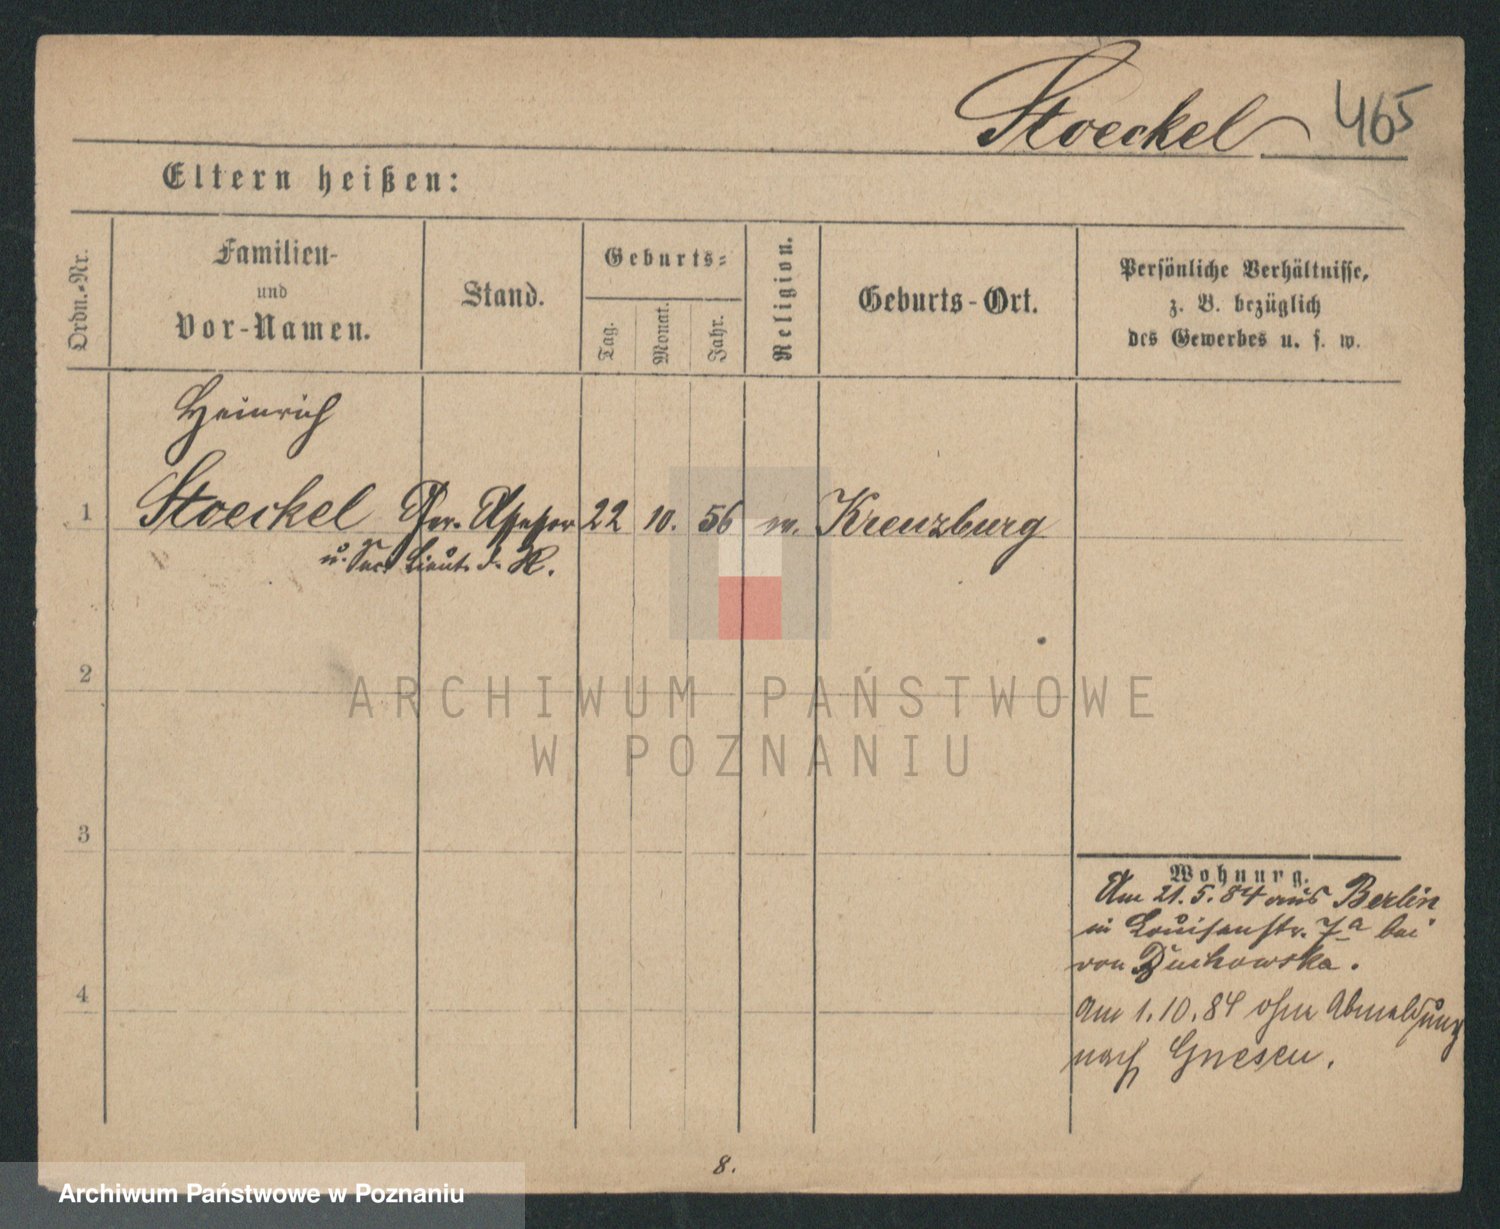 Stoeckel 465
Eltern heißen:
Ordn.-Nr.
Familien-
und
Vor-Namen.
Stand.
Geburts-
Tag.
Monat.
Jahr.
Religion.
Geburts-Ort.
Persönliche Verhältnisse,
z. B. bezüglich
des Gewerbes u. s. w.
Heinrich
1 Stoeckel Assessor 22 10. 56 Kreuzburg
u. Sec. Lieut. d. R.
2
3
4
Wohnung.
Am 21.5.84 aus Berlin
in Louisenstr. 7a bei
von
Am 1.10.84 ohne Abmeldung
nach Gnesen.
8.
ARCHIWUM PAŃSTWOWE
W POZNANIU
Archiwum Państwowe w Poznaniu